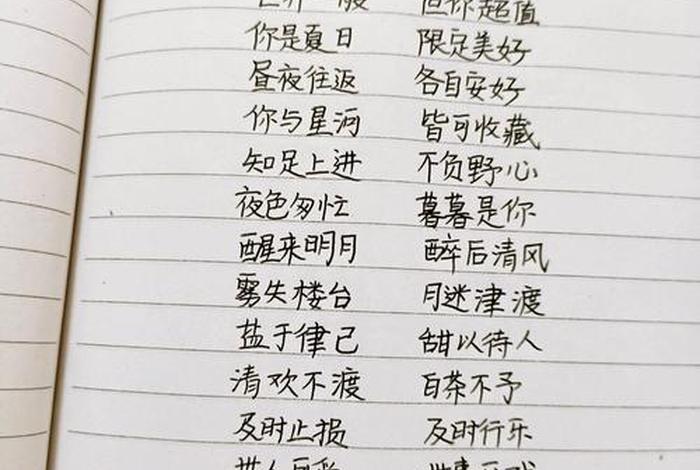 世界一般 但你超值
你是夏日 限定美好
昼夜往返 各自安好
你与星河 皆可收藏
知足上进 不负野心
夜色匆忙 暮暮是你
醒来明月 醉后清风
雾失楼台 月迷津渡
盐于律己 甜以待人
清欢不渡 白茶不予
及时止损 及时行乐